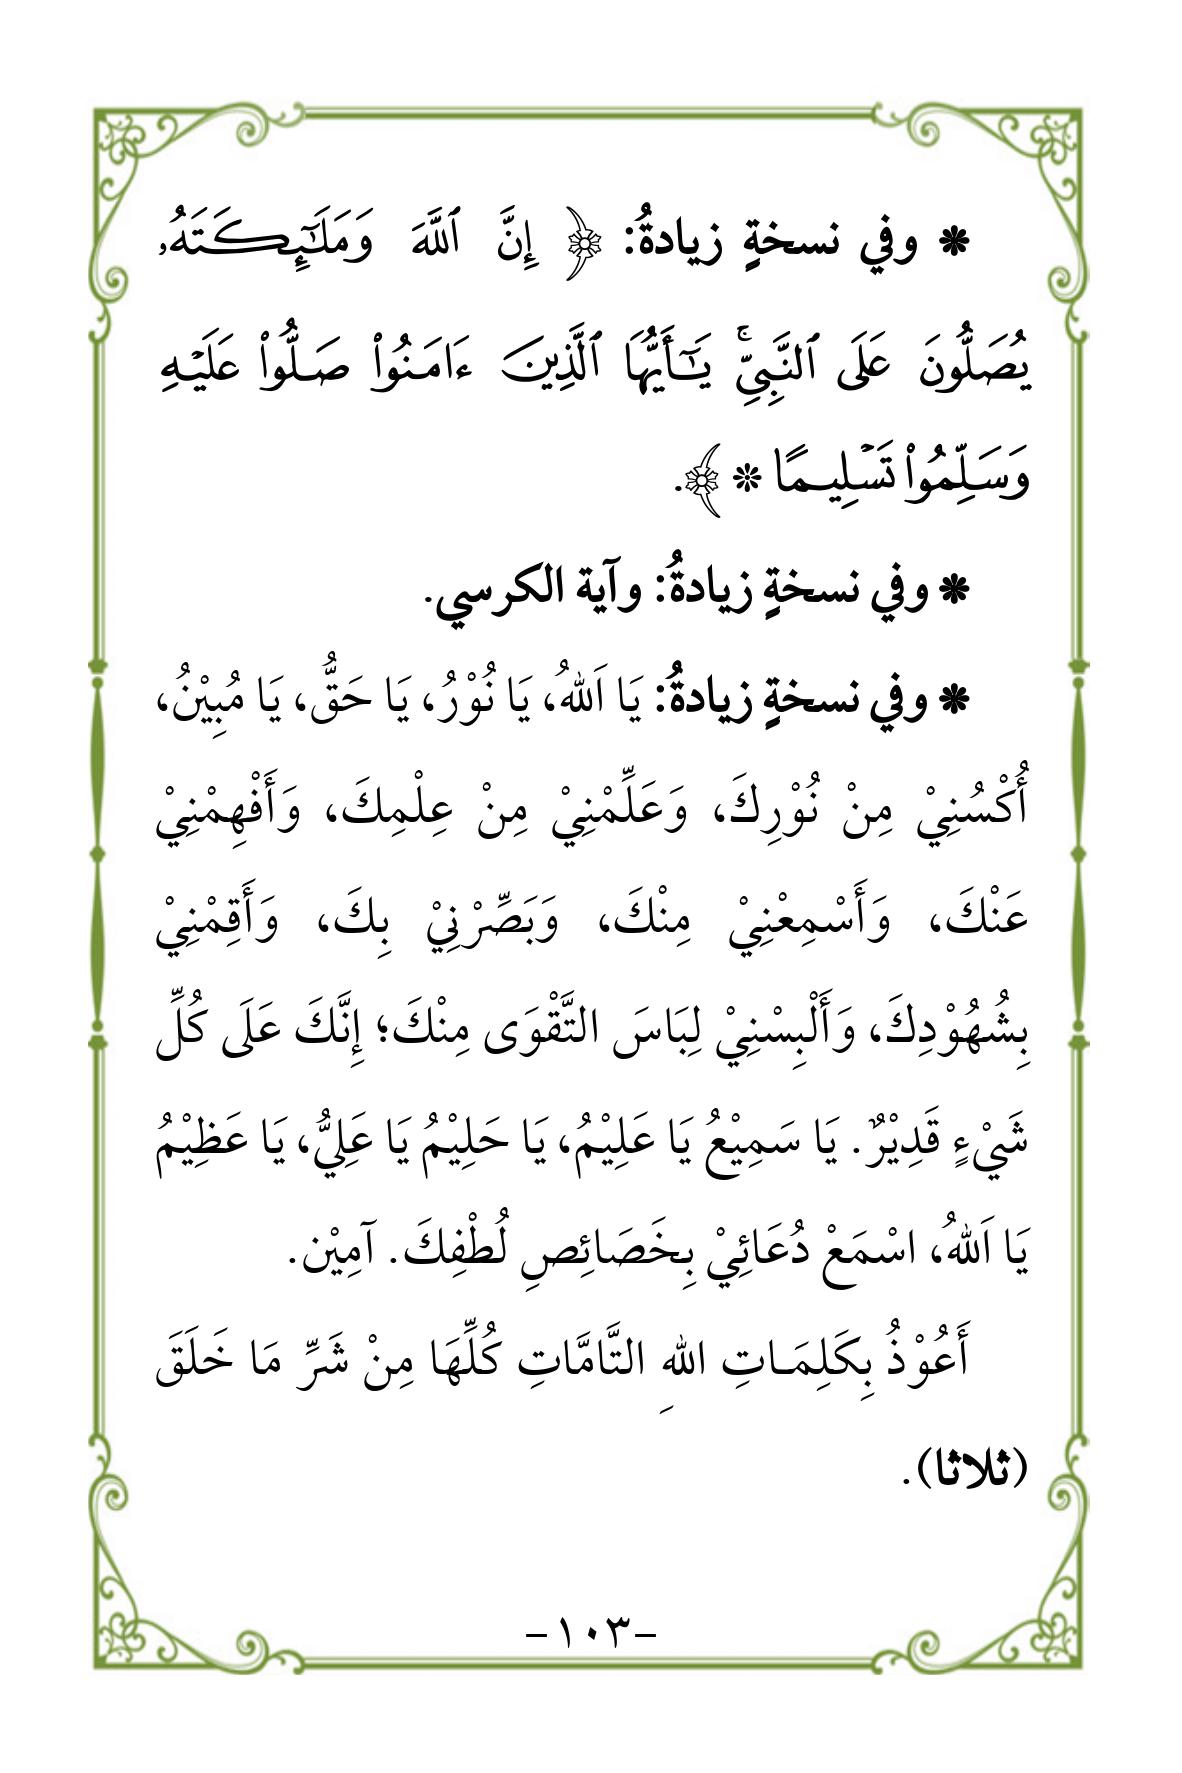 * وفي نسخةٍ زيادةُ: ﴿ إِنَّ ٱللَّهَ وَمَلَٰٓئِكَتَهُۥ
يُصَلُّونَ عَلَى ٱلنَّبِيِّۚ يَٰٓأَيُّهَا ٱلَّذِينَ ءَامَنُوا۟ صَلُّوا۟ عَلَيْهِ
وَسَلِّمُوا۟ تَسْلِيمًا * ﴾.
* وفي نسخةٍ زيادةُ: وآية الكرسي.
* وفي نسخةٍ زيادةُ: يَا اَللهُ، يَا نُوْرُ، يَا حَقُّ، يَا مُبِيْنُ،
أُكْسُنِيْ مِنْ نُوْرِكَ، وَعَلِّمْنِيْ مِنْ عِلْمِكَ، وَأَفْهِمْنِيْ
عَنْكَ، وَأَسْمِعْنِيْ مِنْكَ، وَبَصِّرْنِيْ بِكَ، وَأَقِمْنِيْ
بِشُهُوْدِكَ، وَأَلْبِسْنِيْ لِبَاسَ التَّقْوَى مِنْكَ؛ إِنَّكَ عَلَى كُلِّ
شَيْءٍ قَدِيْرٌ. يَا سَمِيْعُ يَا عَلِيْمُ، يَا حَلِيْمُ يَا عَلِيُّ، يَا عَظِيْمُ
يَا اَللهُ، اسْمَعْ دُعَائِيْ بِخَصَائِصِ لُطْفِكَ. آمِيْن.
أَعُوْذُ بِكَلِمَاتِ اللهِ التَّامَّاتِ كُلِّهَا مِنْ شَرِّ مَا خَلَقَ
(ثلاثا).
-١٠٣-